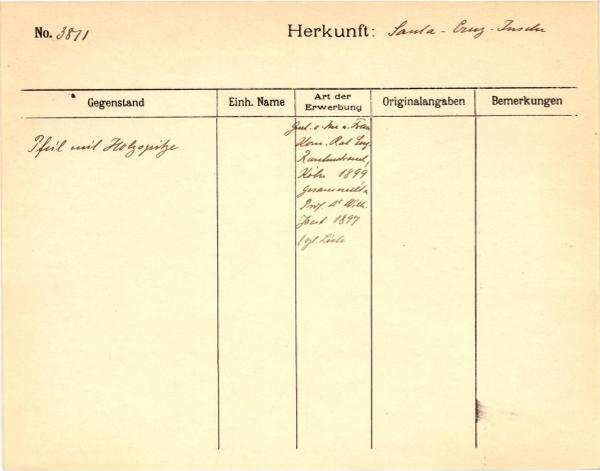 No. 3871 Herkunft: Santa-Cruz-Inseln
Gegenstand Einh. Name Art der Erwerbung Originalangaben Bemerkungen
Pfeil mit Holzspitze
Frau
Kom. Rat Eug.
Rautenstrauch,
Köln 1899
Gesammelt v.
Prof. Dr Wilh.
Joest 1897
(vgl. Liste